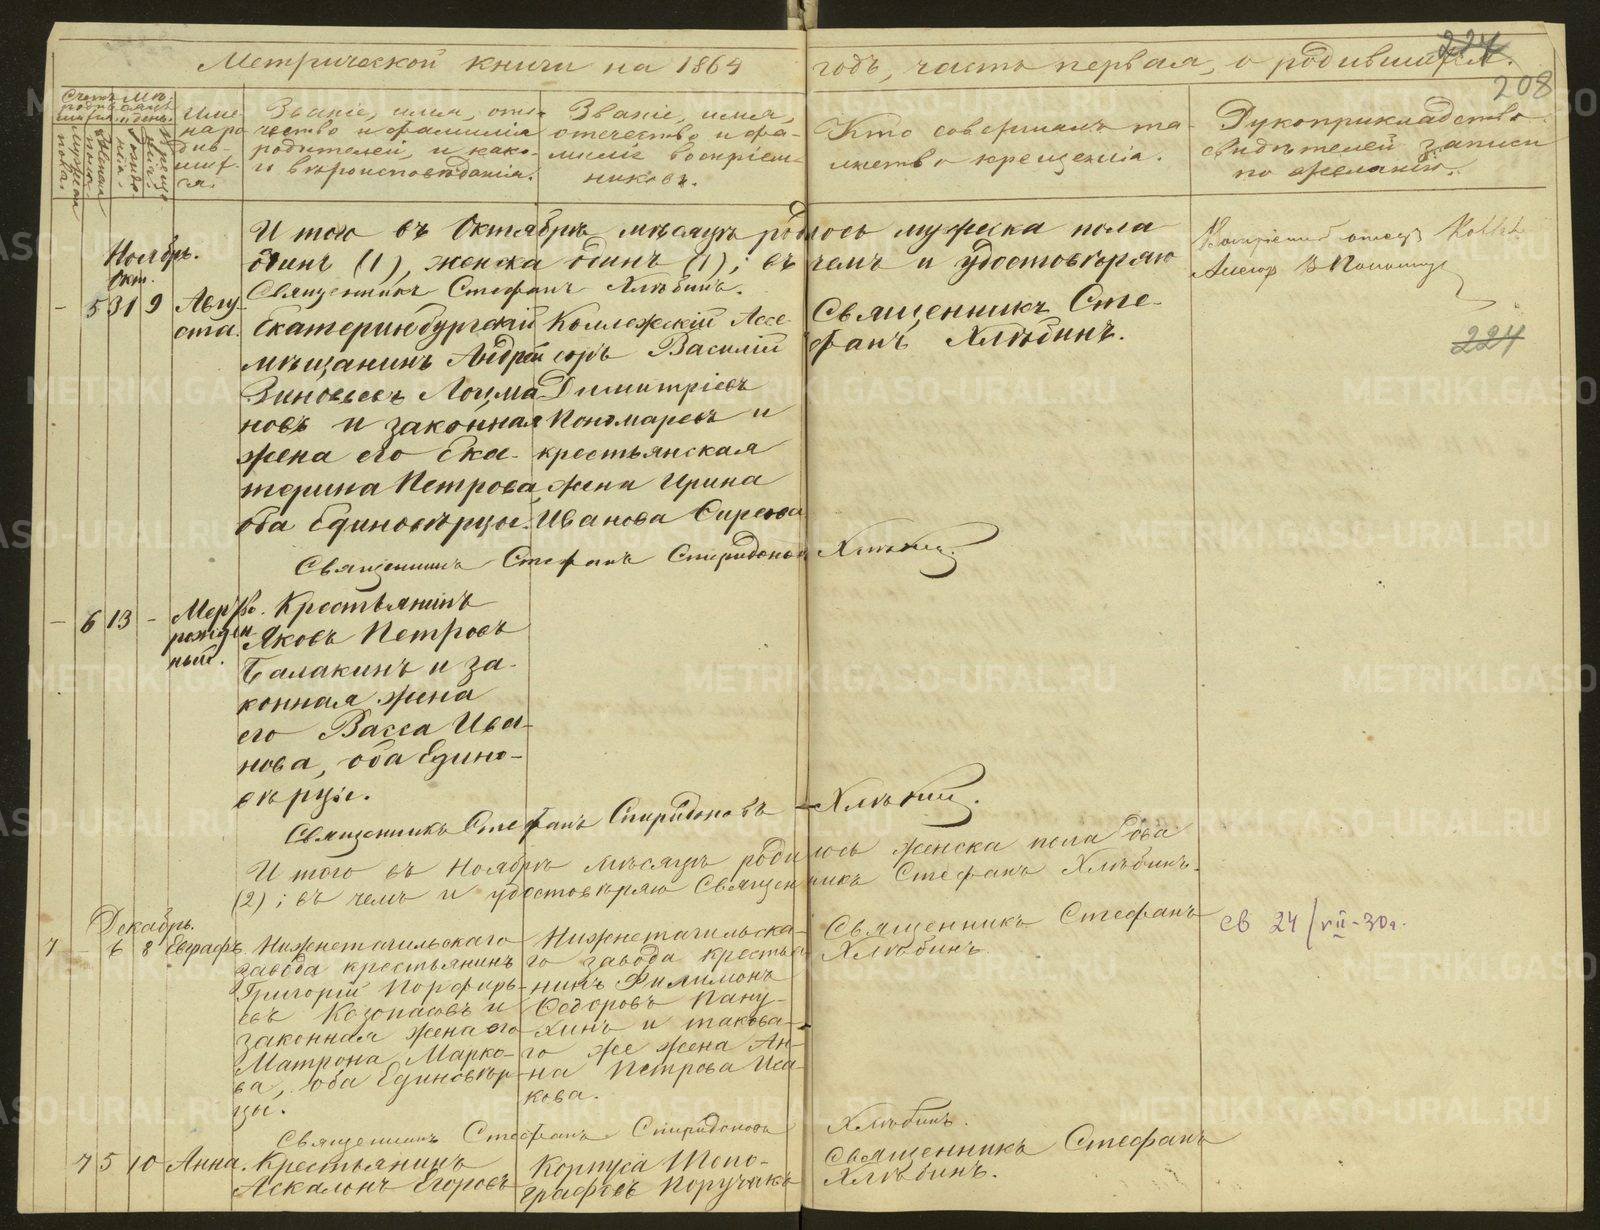 Метрической книги на 1864 годъ, часть первая, о родившихся.
224
208
Счетъ родившихся
Мѣсяцъ и день
Мужеска пола.
Женска пола.
Рожденія.
Крещенія.
Имена родившихся.
Званіе, имя, отчество и фамилія родителей, и какого вѣроисповѣданія.
Званіе, имя, отчество и фамилія воспріемниковъ.
Кто совершалъ таинство крещенія.
Рукоприкладство свидѣтелей записи по желанію.
Итого въ Октябрѣ мѣсяцѣ родилось мужеска пола
одинъ (1), женска одинъ (1); въ чемъ и удостовѣряю
Священникъ Стефанъ Хлѣбинъ.
Ноябрь.
Окт.
- 5 31 9
Авгу-
ста.
Екатеринбургскій
мѣщанинъ Андрей
Зиновьевъ Лоцма-
новъ и законная
жена его Ека-
терина Петрова,
оба Единовѣрцы.
Коллежскій Ассе-
соръ Василій
Димитріевъ
Пономаревъ и
крестьянская
жена Ирина
Иванова Сиркова
Священникъ Сте-
фанъ Хлѣбинъ.
Воспріемный отецъ
Асесор В Пономарев
224
Священникъ Стефанъ Спиридоновъ Хлѣбин.
- 6 13 -
Мертво-
рожден-
ный.
Крестьянинъ
Яковъ Петровъ
Балакинъ и за-
конная жена
его Васса Ива-
нова, оба Едино-
вѣрцы.
Священникъ Стефанъ Спиридоновъ Хлѣбин.
Итого въ Ноябрѣ мѣсяцѣ родилось женска пола два
(2); въ чемъ и удостовѣряю Священникъ Стефанъ Хлѣбинъ.
Декабрь.
7 - 6 8 Евграфъ.
Нижнетагильскаго
завода крестьянинъ
Григорій Порфирь-
евъ Козопасовъ и
законная жена его
Матрона Марко-
ва, оба Единовѣр-
цы.
Нижнетагильска-
го завода крестья-
нинъ Филимонъ
Ѳедоровъ Пану-
хинъ и такова-
го же жена Ан-
на Петрова Иса-
кова.
Священникъ Стефанъ
Хлѣбинъ.
св 24/VII-30г.
Священникъ Стефанъ Спиридоновъ Хлѣбинъ.
- 7 5 10 Анна.
Крестьянинъ
Аскалонъ Егоровъ
Корпуса Топо-
графовъ Поручикъ
Священникъ Стефанъ
Хлѣбинъ.
METRIKI.GASO-URAL.RU